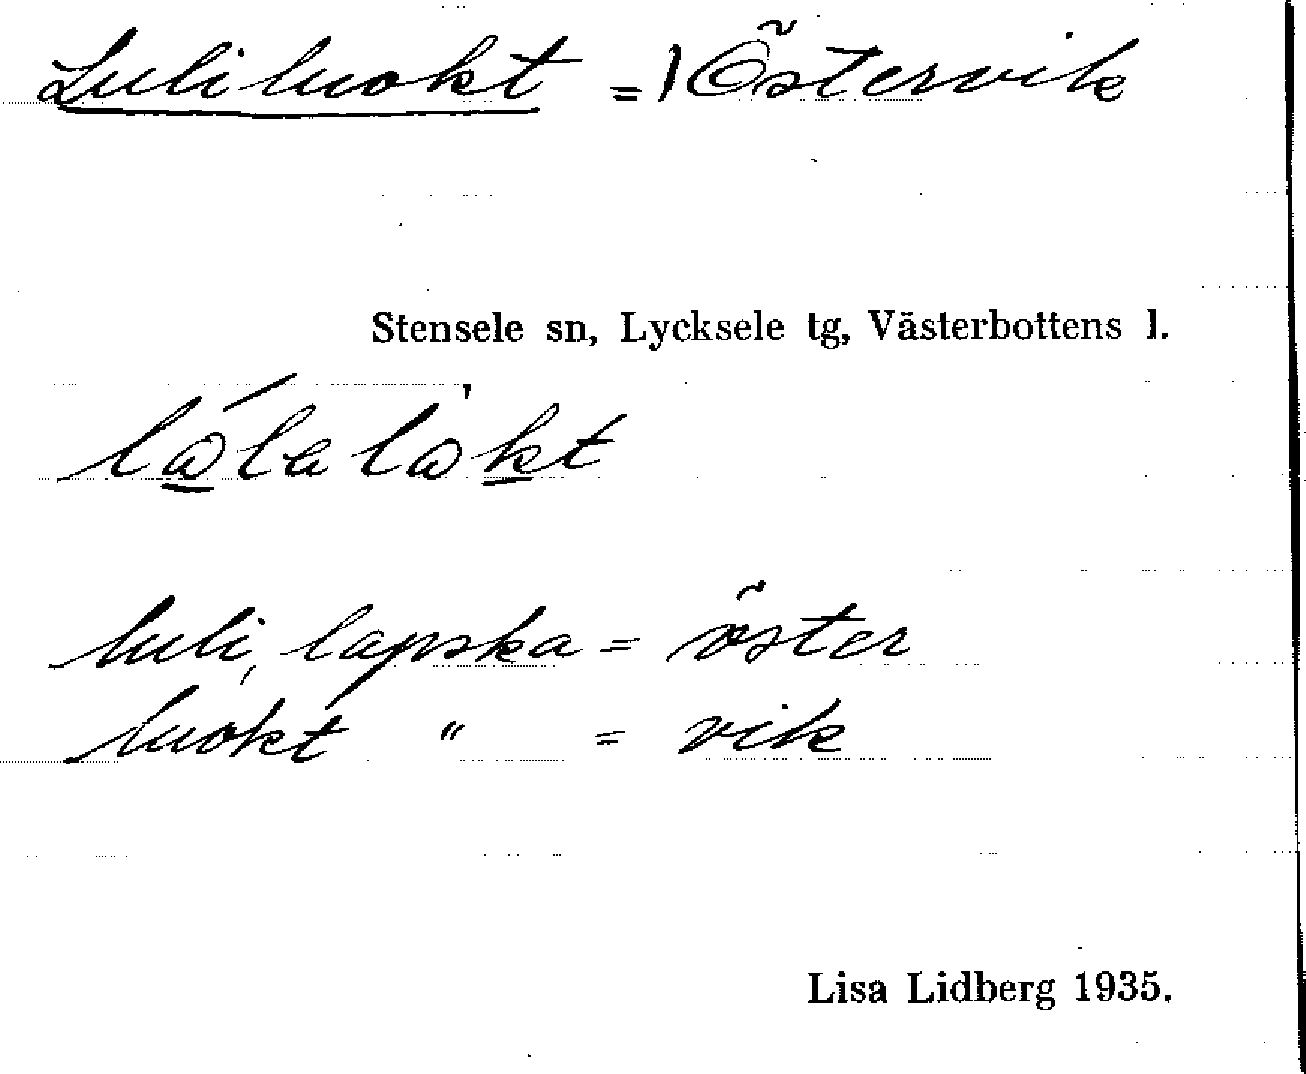 Luliluokt = 1) Östervik
Stensele sn, Lycksele tg, Västerbottens l.
luli, lapska = öster
luokt " = vik
Lisa Lidberg 1935.